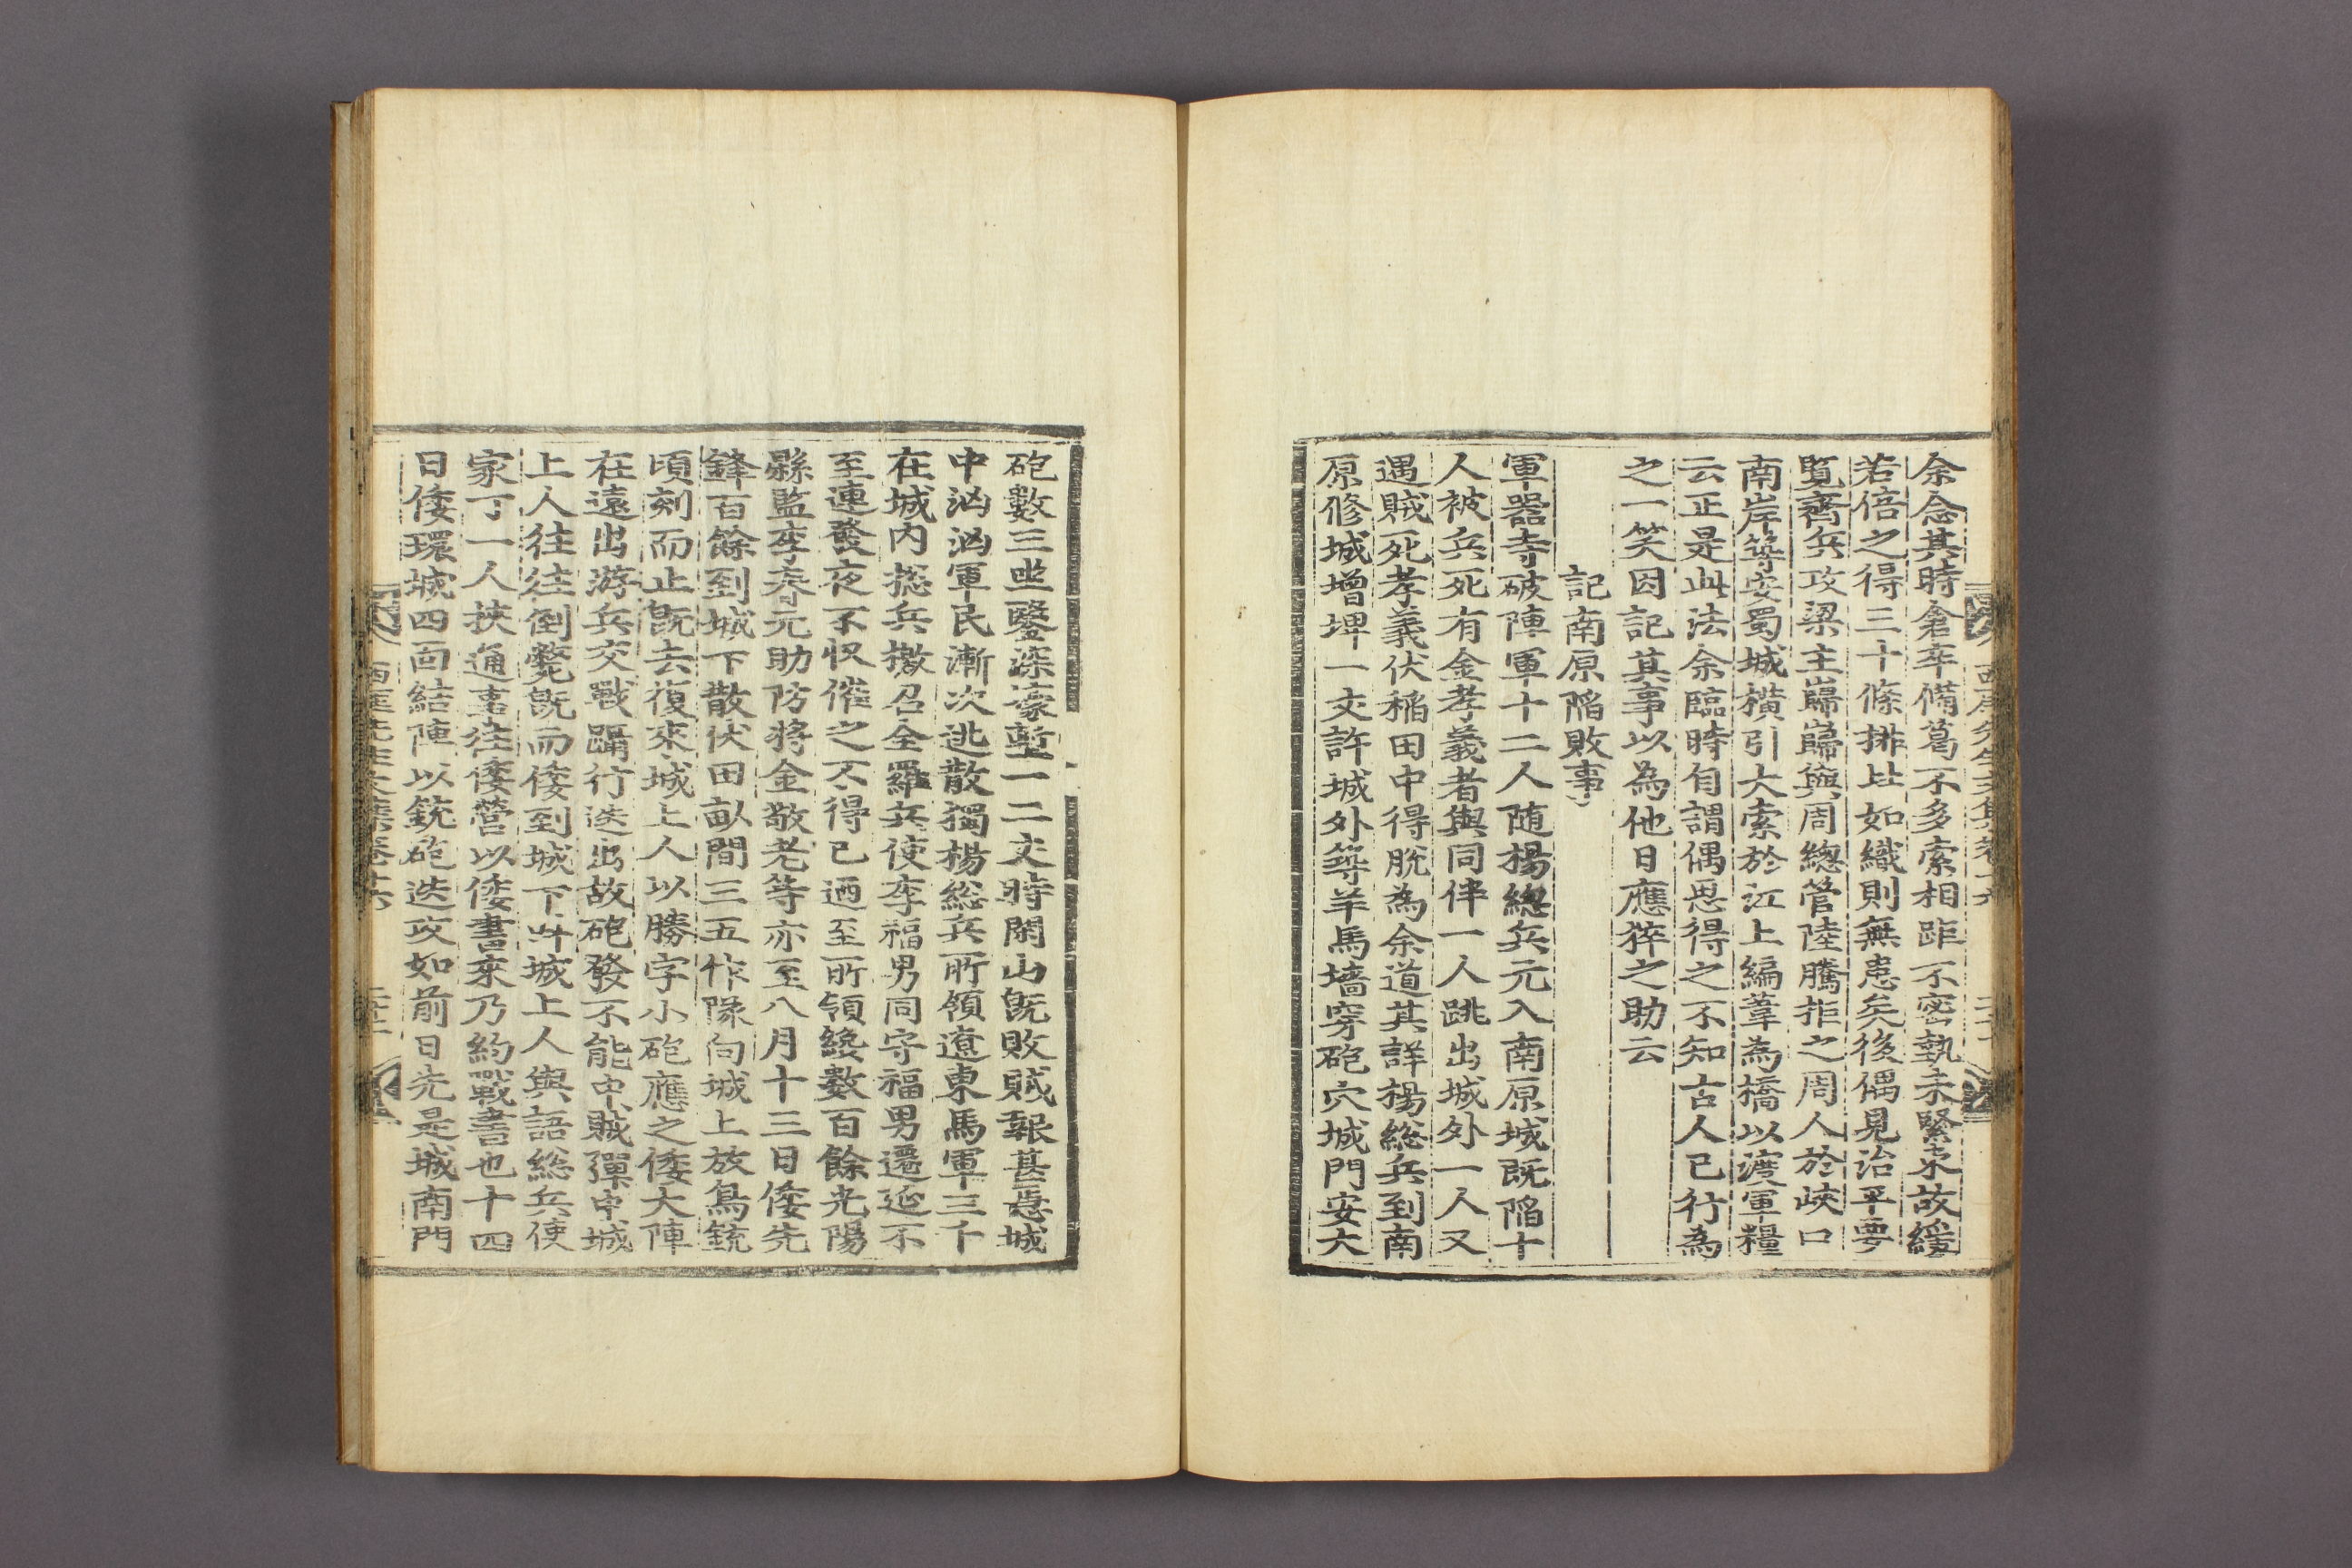 余念其時倉卒備葛不多索相距不密勢未緊束故緩
若倍之得三十條排比如織則無患矣後偶見治平要
覽齊兵攻梁主巋巋與周總管陸騰拒之周人於峽口
南岸築安蜀城橫引大索於江上編葦為橋以渡軍糧
云正是此法余臨時自謂偶思得之不知古人已行為
之一笑因記其事以為他日應猝之助云
記南原陷敗事
軍器寺破陣軍十二人随楊緫兵元入南原城旣陷十
人被兵死有金孝義者與同伴一人跳出城外一人又
遇賊死孝義伏稲田中得脫為余道其詳楊総兵到南
原修城增埤一丈許城外築羊馬墻穿砲穴城門安大
砲數三坐鑿深濠塹一二丈時閑山旣敗賊報甚急城
中洶洶軍民漸次逃散獨楊総兵所領遼東馬軍三千
在城内総兵檄召全羅兵使李福男同守福男遷延不
至連發夜不收催之不得已廼至所領纔數百餘光陽
縣監李春元助防將金敬老等亦至八月十三日倭先
鋒百餘到城下散伏田畝間三五作隊向城上放鳥銃
頃刻而止旣去復來城上人以勝字小砲應之倭大陣
在遠出游兵交戰躡行迭出故砲發不能中賊彈中城
上人往往倒斃旣而倭到城下呌城上人與語総兵使
家丁一人挾通事往倭營以倭書來乃約戰書也十四
日倭環城四面結陣以銃砲迭攻如前日先是城南門